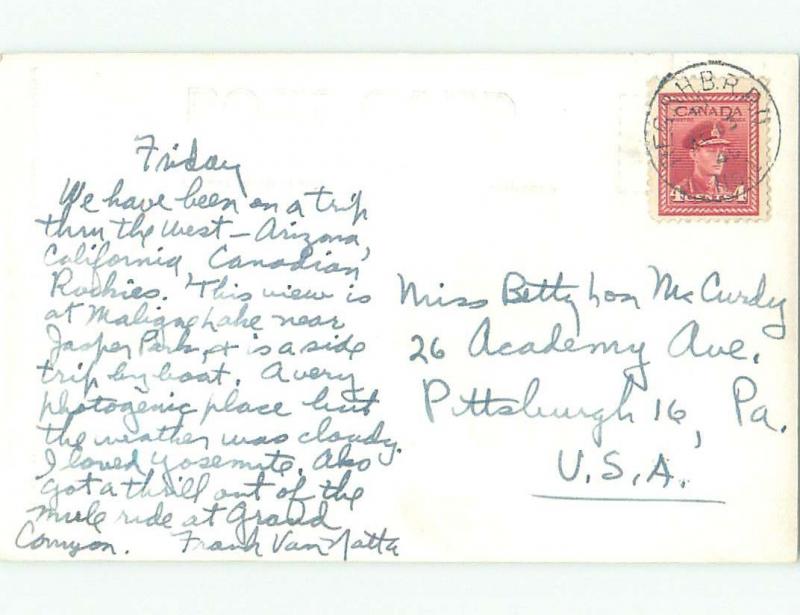 Friday
We have been on a trip
thru the west — Arizona,
California, Canadian
Rockies. This view is
at Maligne Lake near
Jasper Park, & is a side
trip by boat. A very
photogenic place but
the weather was cloudy.
I loved Yosemite. Also
got a thrill out of the
mule ride at Grand
Canyon. Frank Van Natta
Miss Betty Lou McCurdy
26 Academy Ave.
Pittsburgh 16, Pa.
U.S.A.
CANADA
POST CARD